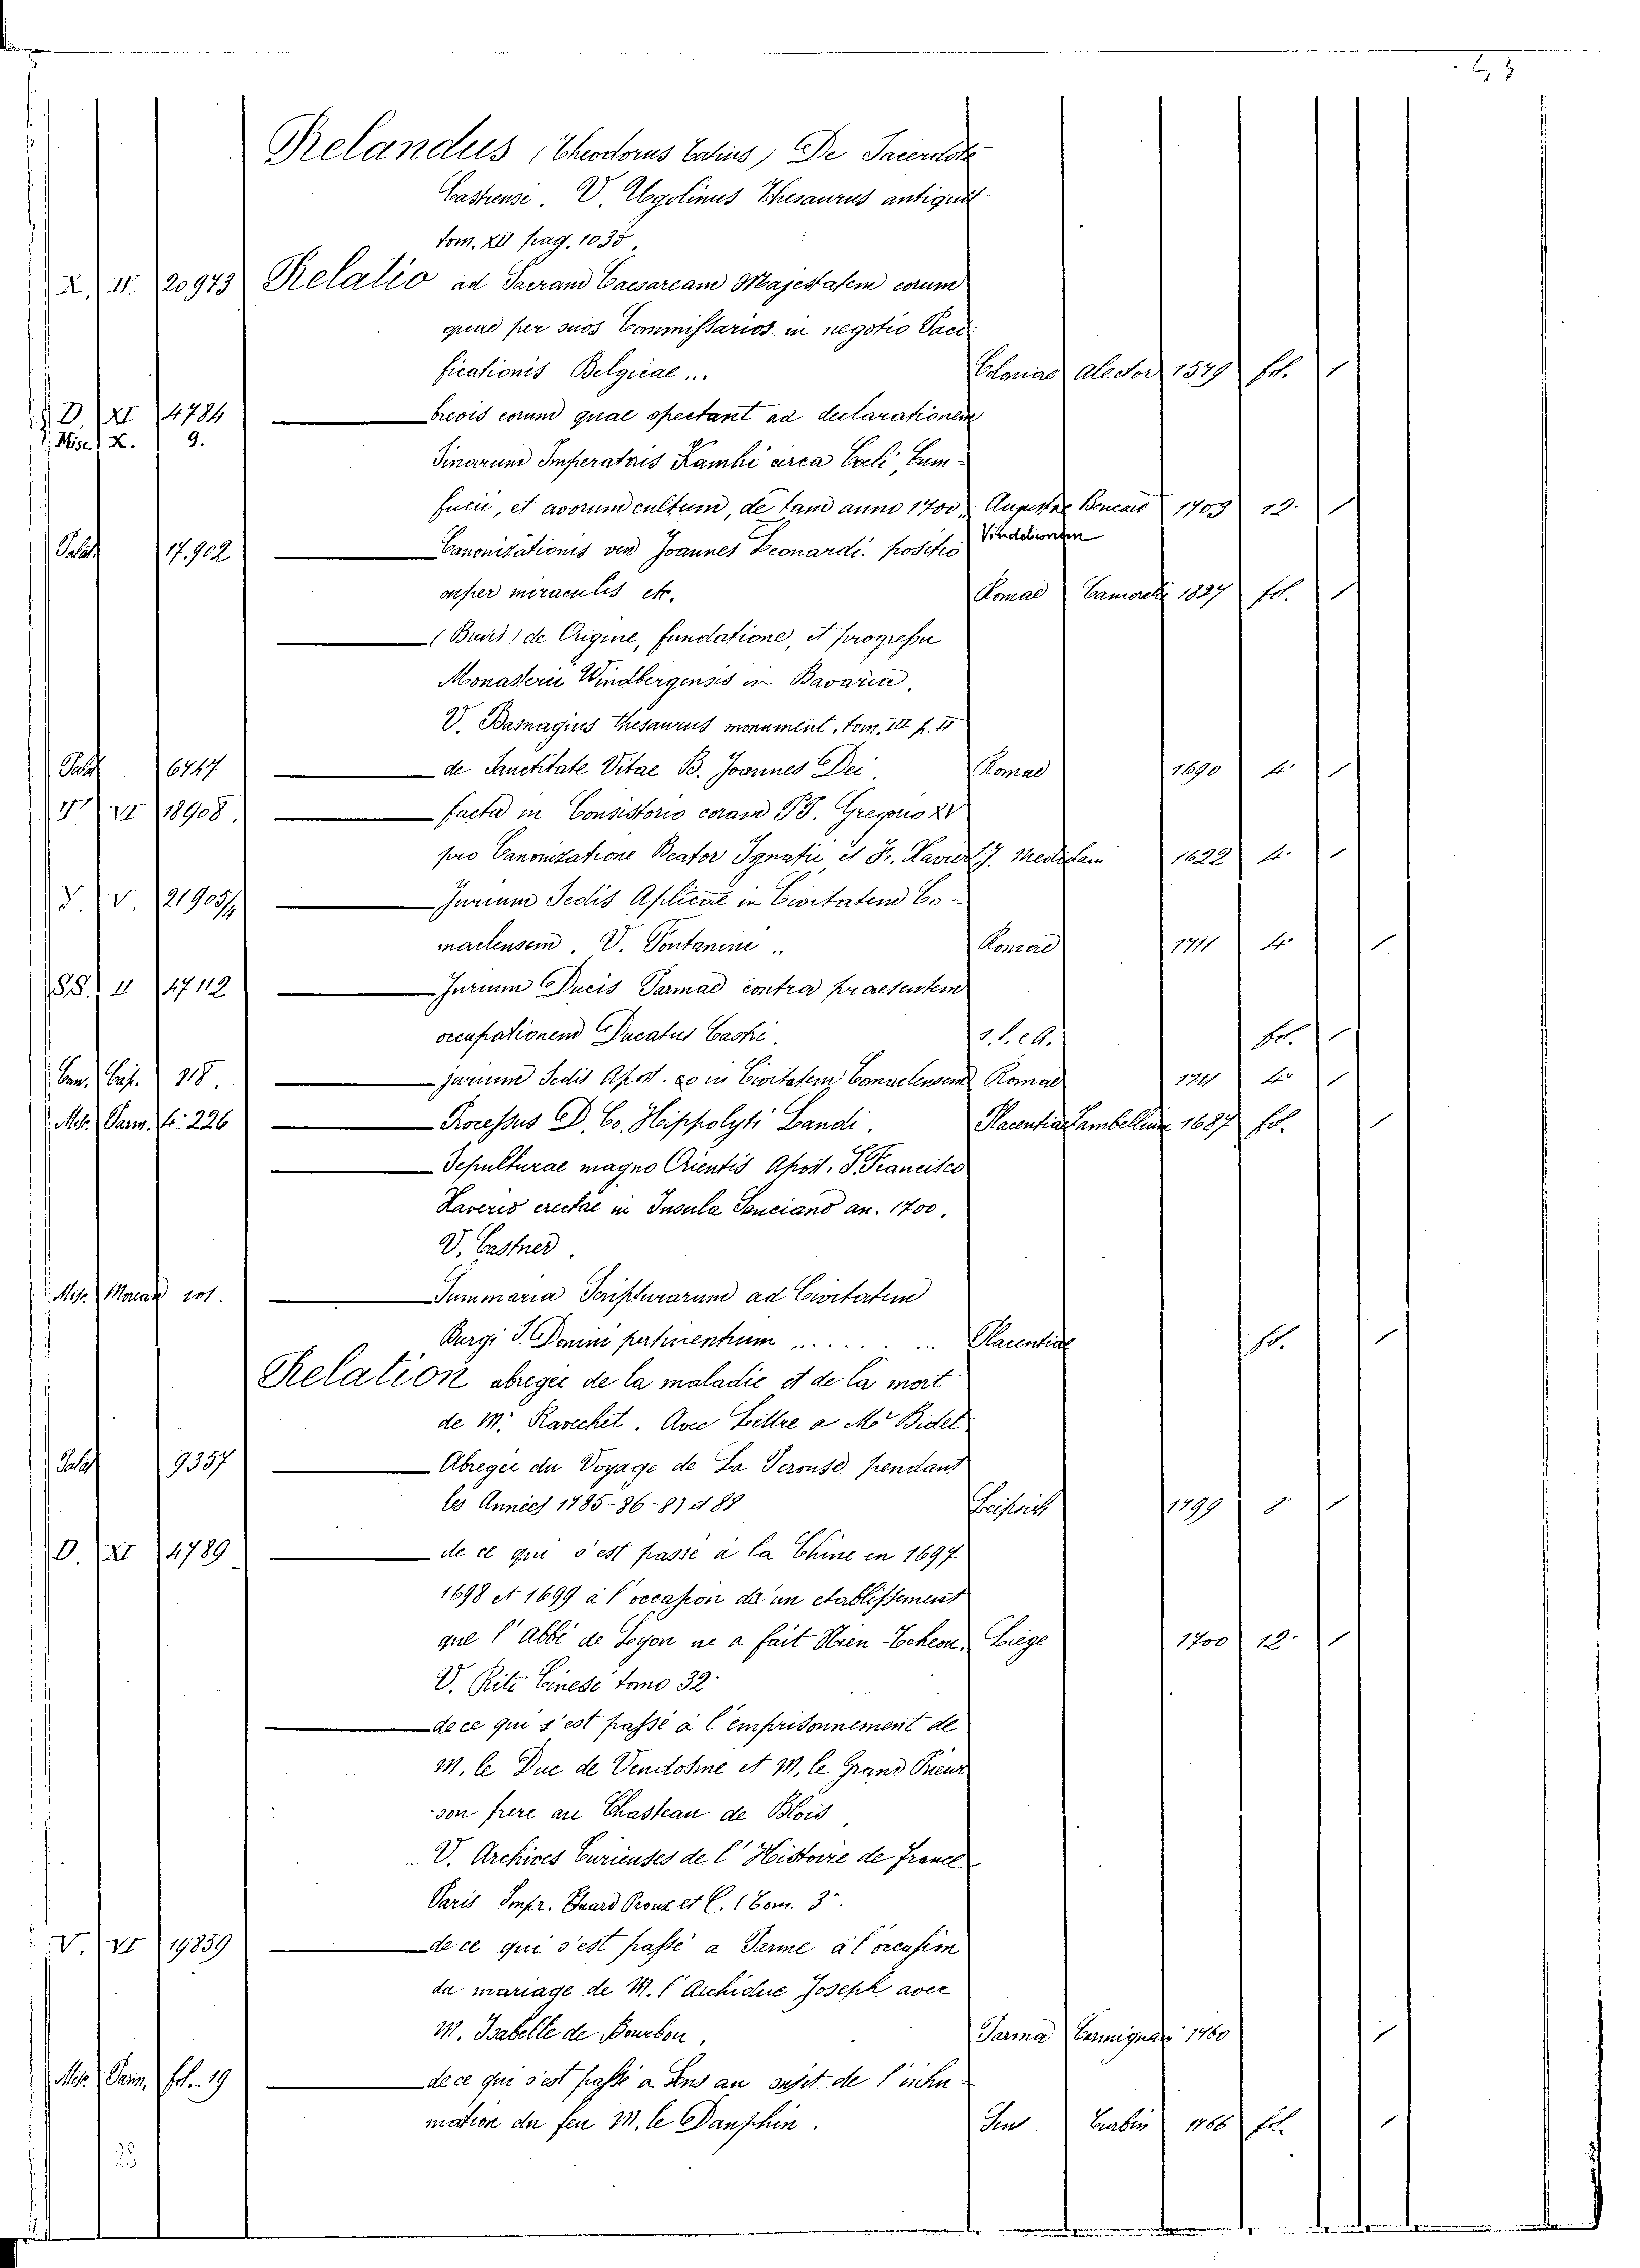 Relandus (Theodorus Carius) De Sacerdote
Castrensi. V. Ugolinus Thesaurus antiquit
tom. XII pag. 1035.
X. II. 20973 Relatio ad Sacram Caesaream Majestatem eorum
quae per suos Commissarios in negotio Paci-
ficationis Belgicae ... Coloniae Alector 1579 fol. 1
D. XI 4784 — brevis eorum quae spectant ad declarationem
Misc. X. 9.
Sinarum Imperatoris Kamhi circa Coeli, Cum-
fucii, et avorum cultum, datam anno 1700. Augustae Bencard 1703 12. 1
Vindelicorum
Palat 17.902 — Canonizationis ven Joannes Leonardi. positio
super miraculis etc. Romae 1827 fol. 1
— (Brevis) de Origine, fundatione, et progressu
Monasterii Windbergensis in Bavaria.
V. Basnagius Thesaurus monument. tom. III p. II
Palat 6747 — de Sanctitate Vitae B. Joannes Dei. Romae 1690 4. 1
V VI 18908. — facta in Consistorio coram SS. Gregorio XV
pro Canonizatione Beator Ignatii et Fr. Xaverii J. 1622 4. 1
V. 21905/4 — Jurium Sedis Aplicae in Civitatem Co-
maclensem. V. Fontanini .. Romae 1711 4. 1
SS. II. 14712 — Jurium Ducis Parmae contra praesentem
occupationem Ducatus Castri. s. l. e A. fol. 1
Caps. 318. — jurium Sedis Apost. co in Civitatem Comaclensem Romae 1711 4. 1
Misc. Parm. fo: 226 — Processus D. Co. Hippolyti Landi. Placentiae Zambellium 1687 fol. 1
— Sepulturae magno Orientis Apost. S. Francisco
Xaverio erectae in Insula Sanciano an. 1700.
V. Castner.
Misc. Moreau 201. — Summaria Scripturarum ad Civitatem
Burgi S. Donini pertinentium ....... Placentiae fol. 1
Relation abregée de la maladie et de la mort
de Mr. Ravechet. Avec Lettre a Mor Bidel
Palat 9357 — Abregée du Voyage de La Perouse pendant
les Années 1785-86-87 et 88. Leipsick 1799 8. 1
D. XI. 4789 — de ce qui s'est passé a la Chine en 1697
1698 et 1699 a l'occasion de un etablissement
que l'Abbé de Lyon ne a fait Nien-Tcheou. Liege 1700 12. 1
V. Riti Cinesi tomo 32.
— de ce qui s'est passé à l'emprisonnement de
M. le Duc de Vendosme et M. le Grand Prieur
son frere au Chasteau de Blois
V. Archives Curieuses de l'Histoire de France
Paris Impr. Eduard Proux et C. (Tom. 3.
V. VI 19859 — de ce qui s'est passé a Parme a l'occasion
du mariage de M. l'Archiduc Joseph avec
M. Isabelle de Bourbon. Parma Carmignani 1760 1
Misc. Parm. fol. 19 — de ce qui s'est passé a Sens au sujet de l'inhu-
mation du feu M. le Dauphin. Sens 1766 fol. 1